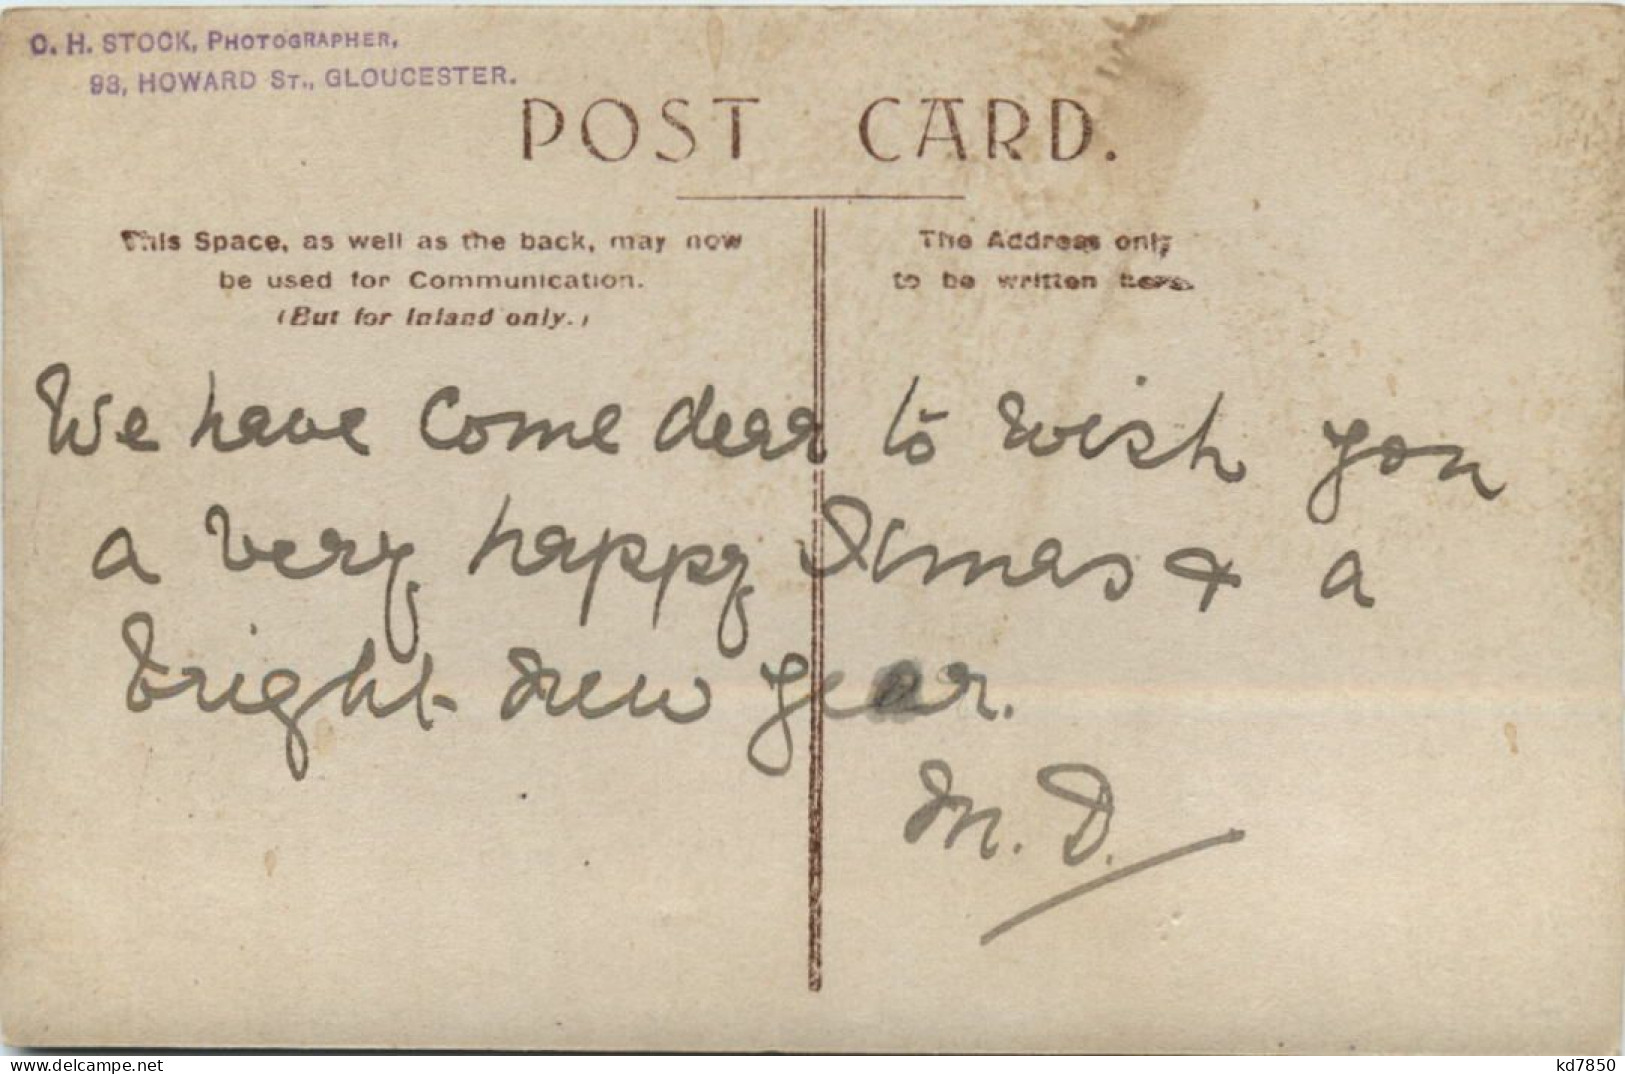 C. H. STOCK, PHOTOGRAPHER,
93, HOWARD ST., GLOUCESTER.
POST CARD.
This Space, as well as the back, may now
be used for Communication.
(But for Inland only.)
The Address only
to be written here.
We have come dear to wish you
a very happy Xmas & a
bright new year.
M. D.
delcampe.net
kd7850